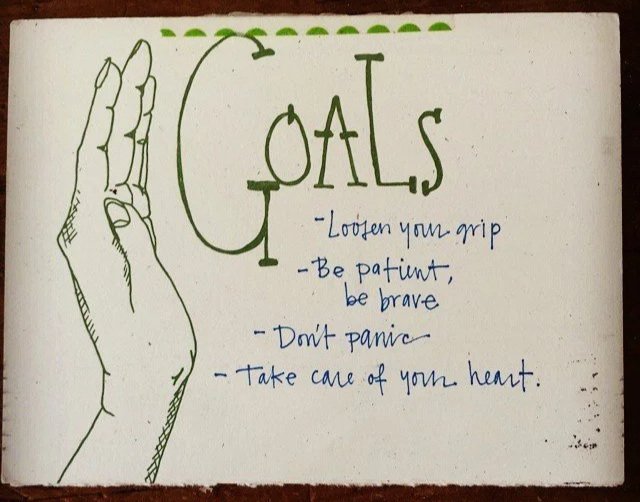 GOALS
- Loosen your grip
- Be patient,
be brave
- Don't panic
- Take care of your heart.